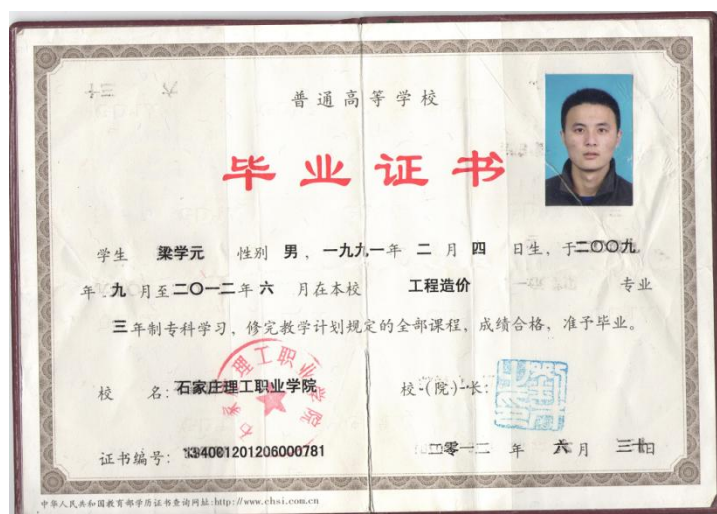 普通高等学校
毕业证书
学生 梁学元 性别 男，一九九一年 二 月 四 日生，于二〇〇九
年 九 月至二〇一二年 六 月在本校 工程造价 专业
三年制专科学习，修完教学计划规定的全部课程，成绩合格，准予毕业。
校 名：石家庄理工职业学院 校（院）长：
证书编号：134061201206000781 二零一二 年 六 月 三十日
中华人民共和国教育部学历证书查询网址:http://www.chsi.com.cn